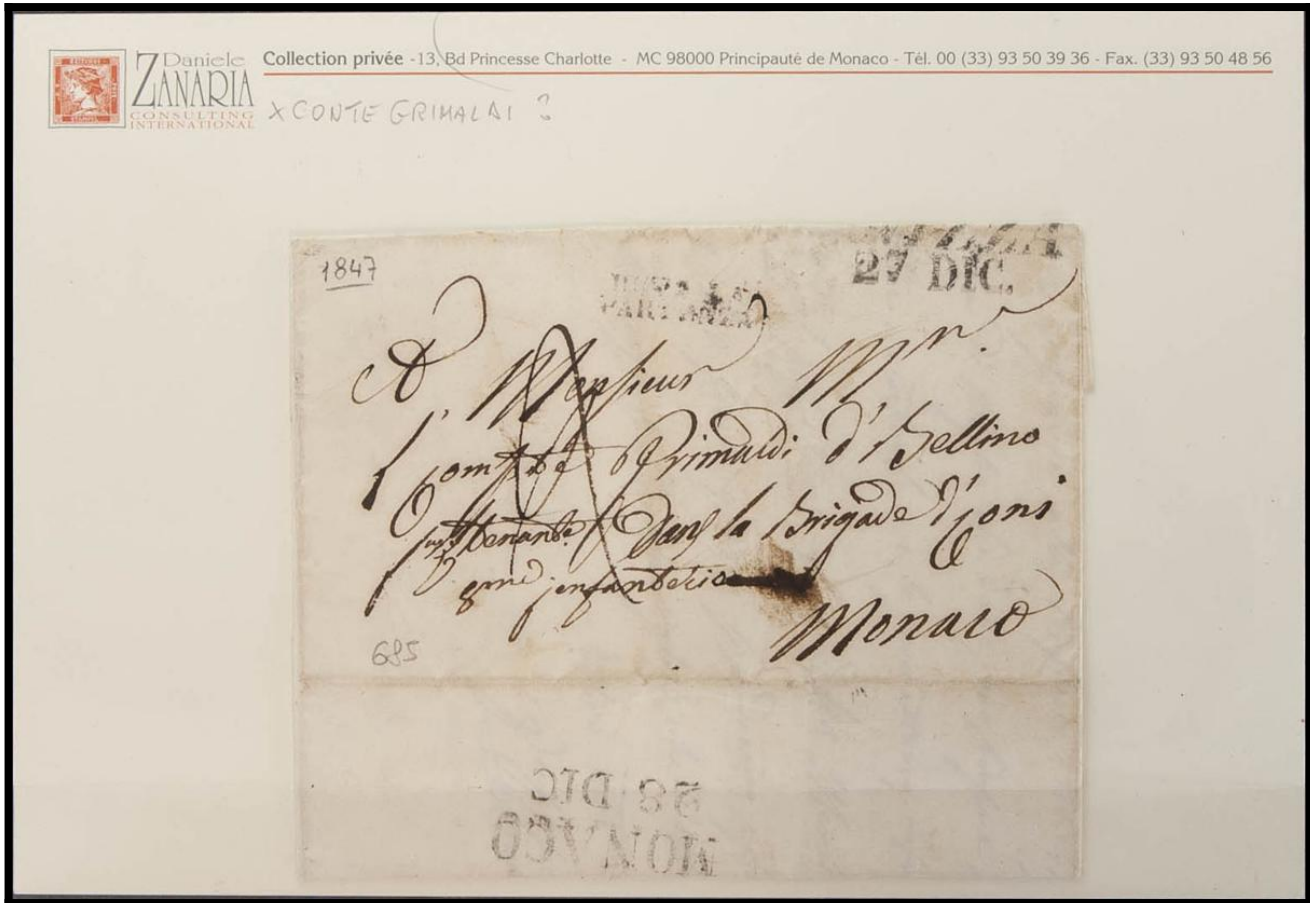 Daniele
ZANARIA
CONSULTING
INTERNATIONAL
Collection privée - 13, Bd Princesse Charlotte - MC 98000 Principauté de Monaco - Tél. 00 (33) 93 50 39 36 - Fax. (33) 93 50 48 56
X CONTE GRIMALDI ?
1847
NIZZA
27 DIC.
DOPO LA
PARTENZA
A Monsieur Mr.
Grimaldi d'Bellino
dans la Brigade d'Coni
8me infanterie
Monaco
685
28 DIC
MONACO